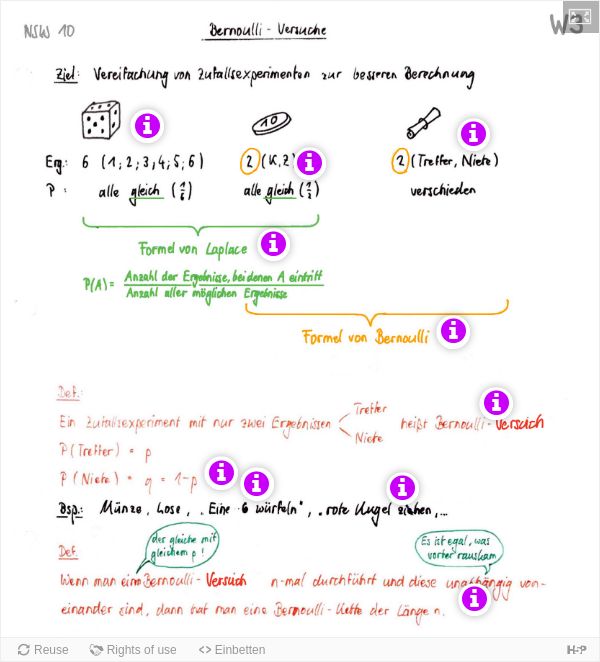 NSW 10
Bernoulli - Versuche
W3
Ziel: Vereifachung von Zufallsexperimenten zur besseren Berechnung
10
Erg.: 6 (1; 2; 3; 4; 5; 6) 2 (K, Z 2 (Treffer, Niete)
P: alle gleich (1/6) alle gleich (1/2) verschieden
Formel von Laplace
P(A) = Anzahl der Ergebnisse, bei denen A eintritt
Anzahl aller möglichen Ergebnisse
Formel von Bernoulli
Def.:
Ein Zufallsexperiment mit nur zwei Ergebnissen < Treffer Niete heißt Bernoulli-Versuch
P(Treffer) = p
P(Niete) = q = 1-p
Bsp.: Münze, Lose, „Eine 6 würfeln", „rote Kugel ziehen,...
der gleiche mit
gleichem p!
Es ist egal, was
vorher rauskam
Def.
Wenn man einen Bernoulli - Versuch n-mal durchführt und diese unabhängig von-
einander sind, dann hat man eine Bernoulli-Kette der Länge n.
Reuse Rights of use <> Einbetten H5P